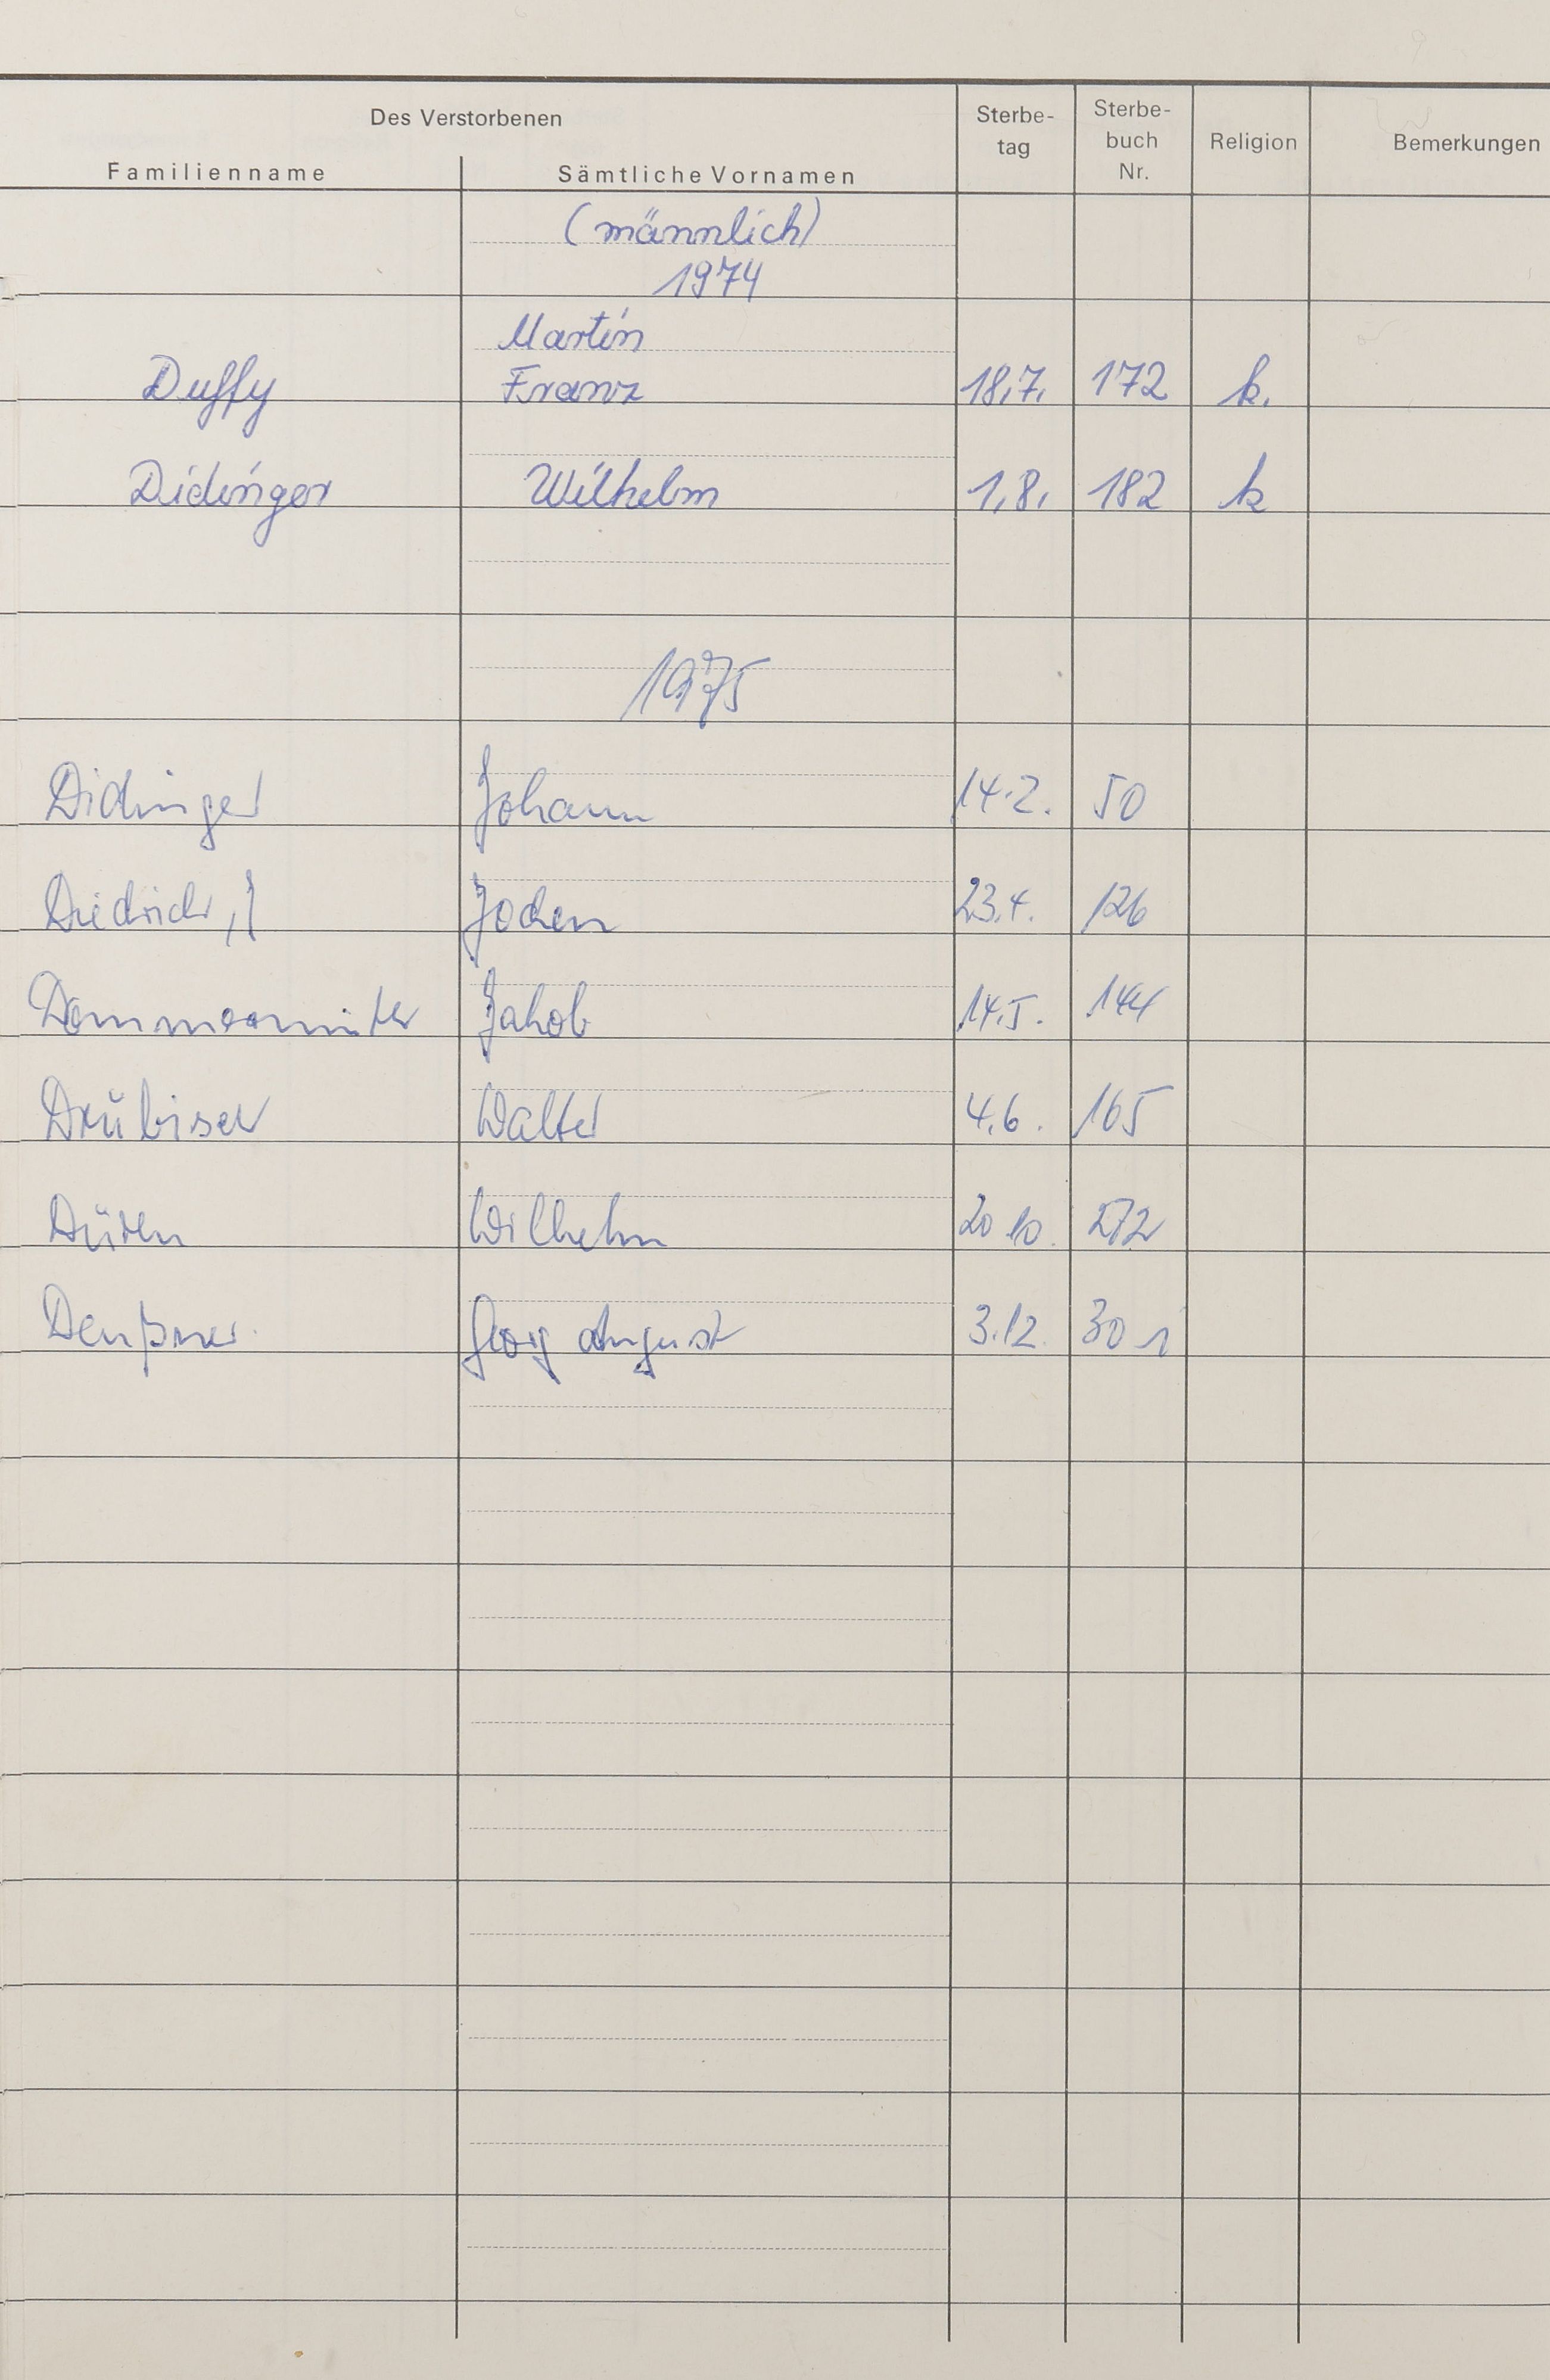 Des Verstorbenen
Familienname Sämtliche Vornamen Sterbe-tag Sterbe-buch Nr. Religion Bemerkungen
(männlich)
1974
Martin
Duffy Franz 18.7. 172 k.
Didinger Wilhelm 1.8. 182 k
1975
Didinger Johann 14.2. 50
Diedrich, J Jochen 23.4. 126
Jakob 14.5. 144
Walter 4.6. 165
Düren Wilhelm 20 10. 272
Georg August 3.12. 301